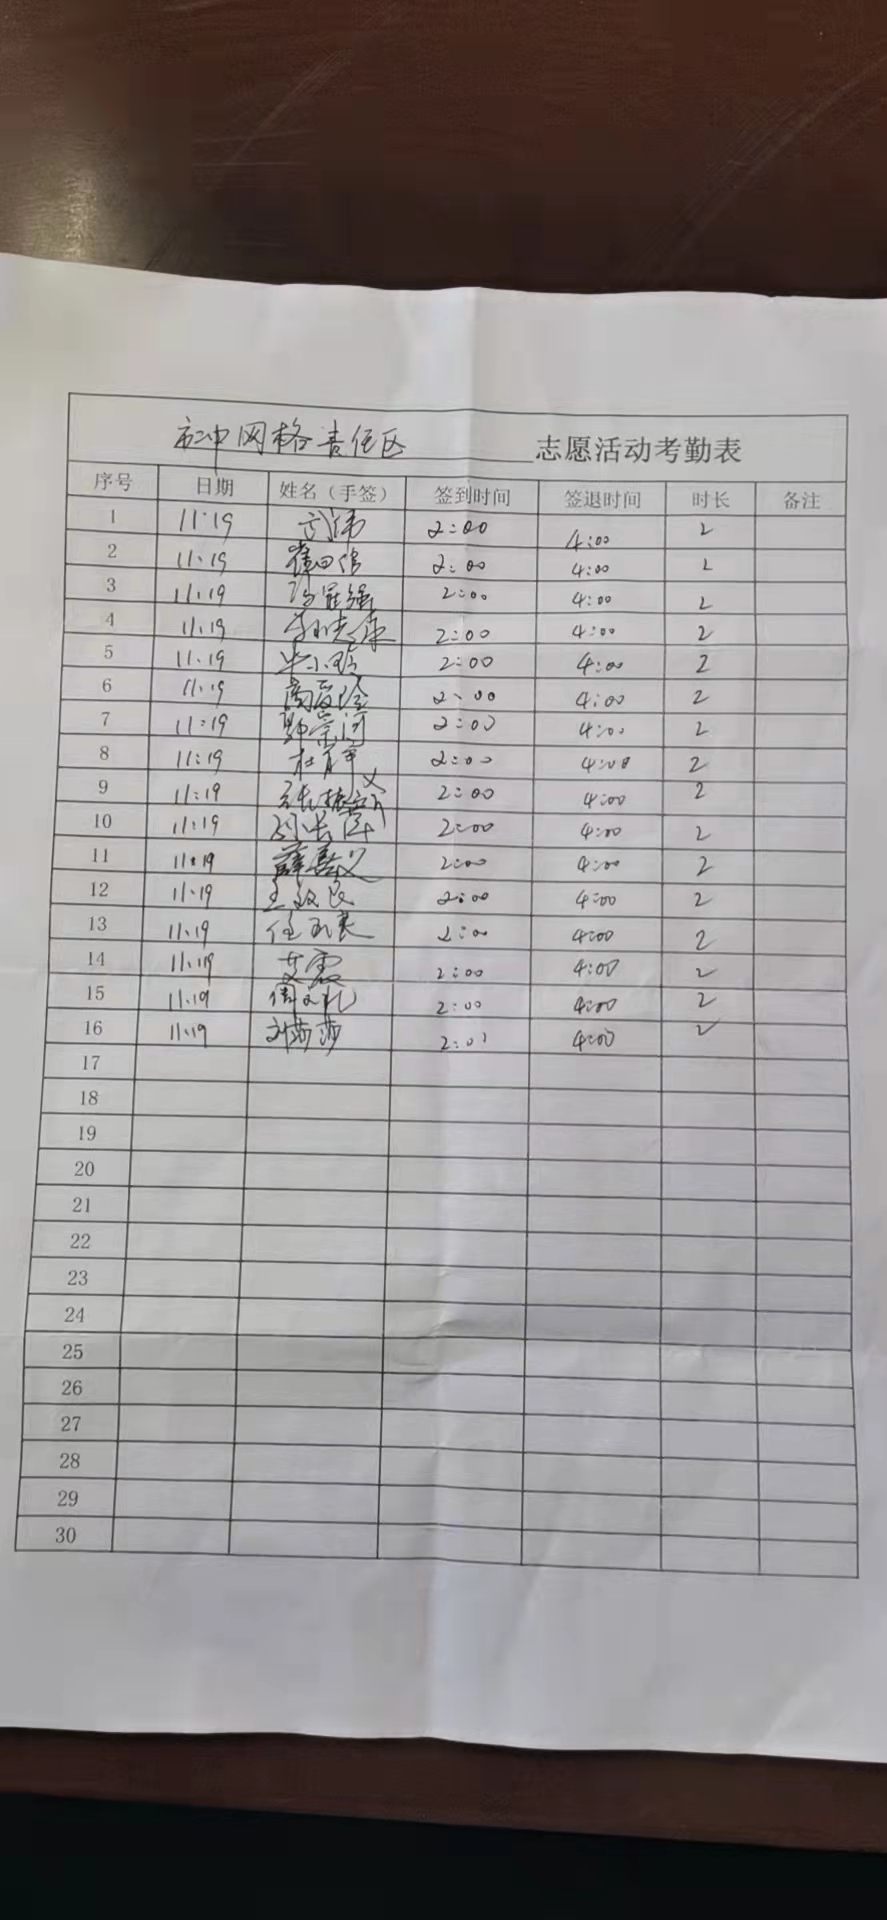 网格责任区 志愿活动考勤表
序号 日期 姓名（手签） 签到时间 签退时间 时长 备注
1 11.19 2:00 4:00 2
2 11.19 2:00 4:00 2
3 11.19 2:00 4:00 2
4 11.19 2:00 4:00 2
5 11.19 2:00 4:00 2
6 11.19 2:00 4:00 2
7 11:19 2:00 4:00 2
8 11:19 2:00 4:00 2
9 11:19 2:00 4:00 2
10 11:19 2:00 4:00 2
11 11:19 薛喜义 2:00 4:00 2
12 11.19 2:00 4:00 2
13 11.19 2:00 4:00 2
14 11.19 艾震 2:00 4:00 2
15 11.19 2:00 4:00 2
16 11.19 刘莎莎 2:00 4:00 2
17
18
19
20
21
22
23
24
25
26
27
28
29
30